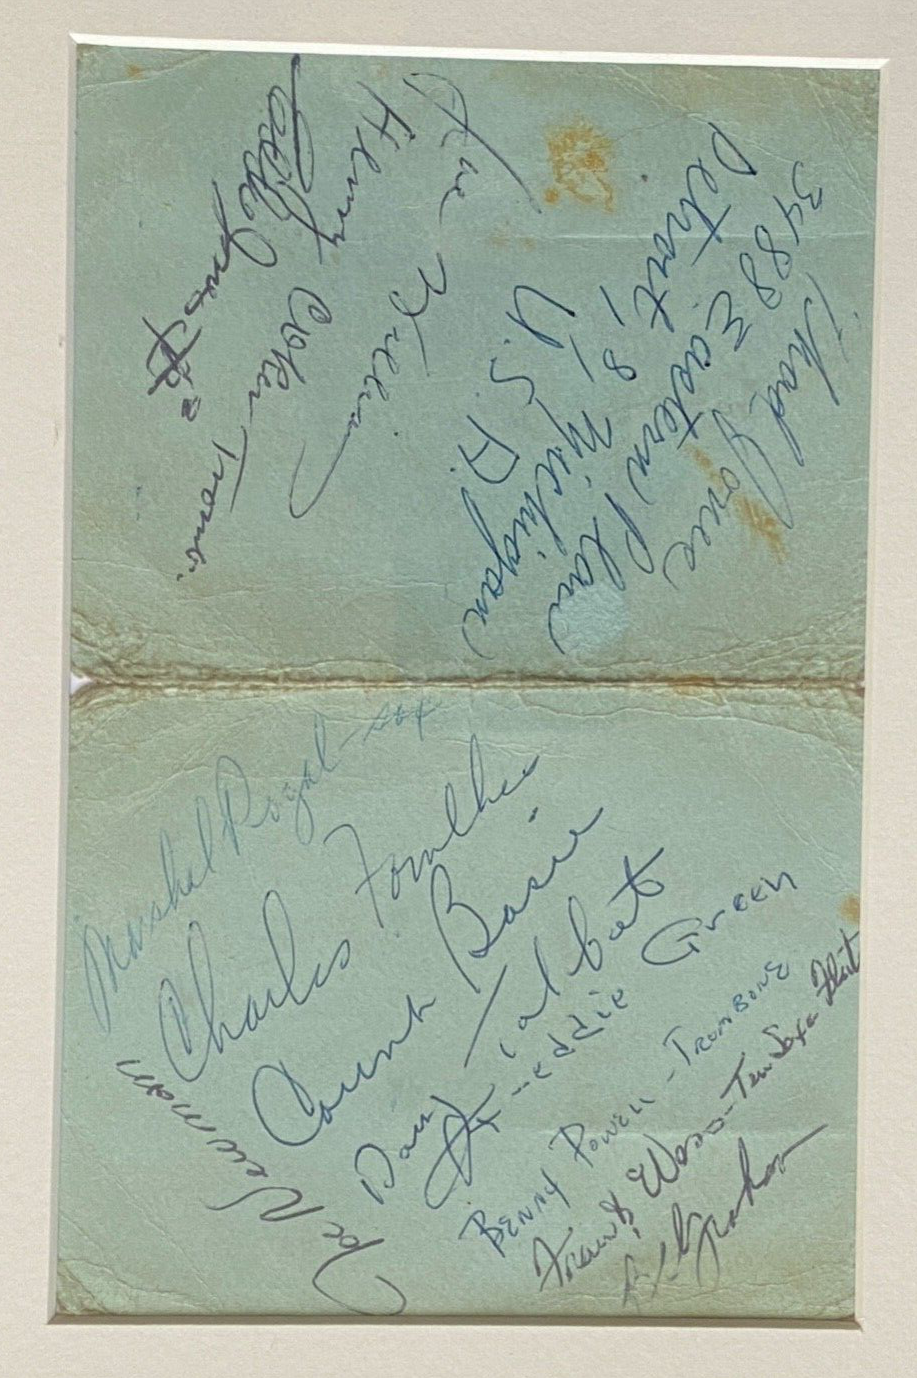 Thad Jones
3488 Eastern Place
Detroit, 8 Michigan
U.S.A.
Joe Williams
Henry Coker Tromb.
Eddie Jones
Marshal Royal - sax
Charles Fowlkes
Count Basie
Dan Talbot
Freddie Green
Benny Powell - Trombone
Frank Wess - Ten Sax & Flute
Bill Graham
Joe Newman